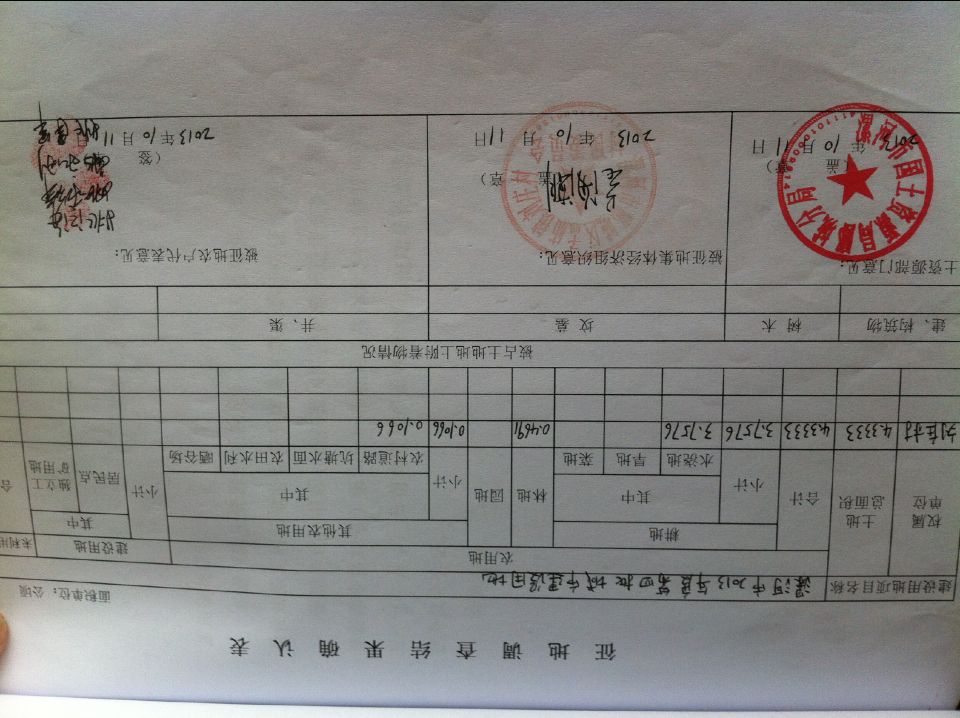 征地调查结果确认表
面积单位：公顷
建设用地项目名称 漯河市2013年度第四批城市建设用地
权属单位 土地总面积 农用地 建设用地 未利用
合计 耕地 林地 园地 其他农用地 小计 其中
小计 其中 小计 其中 居民点 独立工矿用地 合
水浇地 旱地 菜地 农村道路 坑塘水面 农田水利 晒谷场
刘庄村 4.3333 4.3333 3.7576 3.7576 0.4691 0.1066 0.1066
被占土地地上附着物情况
建、构筑物 树木 坟墓 井、渠
土资源部门意见： 被征地集体经济组织意见： 被征地农户代表意见：
漯河市国土资源局郾城分局
（盖章） （盖章） （签）
2013年10月11日 2013年10月11日 2013年10月11日